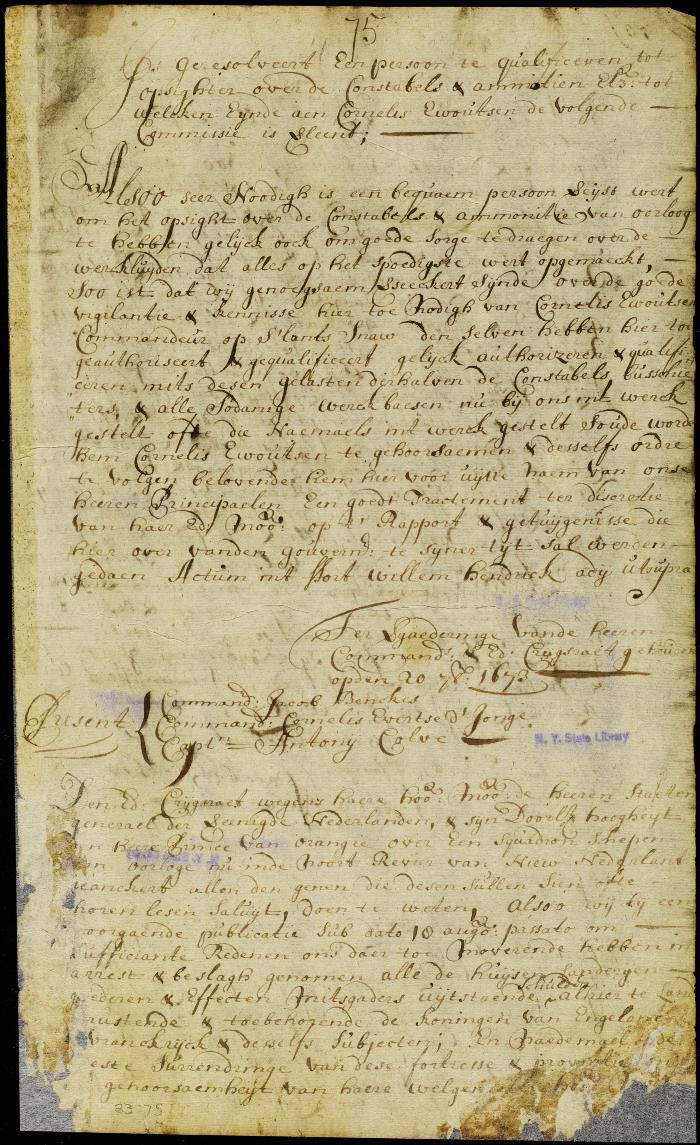 75
Is geresolveert Een persoon te qualificeeren tot
opsighter over de Constabels & ammonitien Etz: tot
welcken Eynde aen Cornelis Ewoutsen de volgende
Commissie is verleent;
Alsoo seer Noodigh is een bequaem persoon vereyst wert
om het opsight over de Constabels & ammonitie van oorlog
te hebben gelijck oock om goede sorge te draegen over de
werckluyden dat alles op het spoedigste wert opgemaeckt,
Soo ist dat wij genoegsaem verseeckert synde over de goede
vigilantie & kennisse hier toe Nodigh van Cornelis Ewoutsen
Commandeur op S'lants Snauw den selven hebben hier toe
geauthoriseert & gequalificeert gelyck authorizeren & qualifi
ceren mits desen gelasten derhalven de Constabels bussschie
ters, & alle Sodanige werckbaesen nu by ons int werck
gestelt ofte die Naemaels int werck gestelt soude word
hem Cornelis Ewoutsen te gehoorsaemen & desselfs ordre
te volgen belovende hem hier voor uytte Naem van onse
heeren Principaelen Een goedt Tractement ter discretie
van haer Ed. Moo: op 't Rapport & getuygenisse die
hier over vanden gouvern:r te syner tyt sal werden
gedaen Actum int Fort willem hendrick adij utsupra
Ter vergaederinge vande heeren
Command:s & Ed: Crygsraet gehouden
op den 20 7b: 1673
Present
Command: Jacob Benckes
Command: Cornelis Evertse d'Jonge
Capt:n Antony Colve
N. Y. State Library
Den Ed: Crygsraet wegens haere hoo: Moo: de heeren Staeten
generael der vereenigde Nederlanden, & syn Doorl: hoogheyt
heere Prince van orangie over Een Squadron schepen
van oorloge nu inde Noort Revier van Nieuw Nederlant
geanckert allen den genen die desen sullen sien ofte
horen lesen saluyt, doen te weten, Alsoo wy by een
voorgaende publicatie sub dato 18 aug:o passato om
sufficiante Redenen ons daer toe moverende hebben in
arrest & beslagh genomen alle de huysen Landeryen
goederen & Effecten mitsgaders uytstaende schulden alhier te Land
rustende & toebehorende de koningen van Engelant
vranckryck & desselfs subjecten; En Naedemael op de
este surrendringe van dese fortresse & provintie
gehoorsaemheyt van haere welgemelte hoo:
23-75